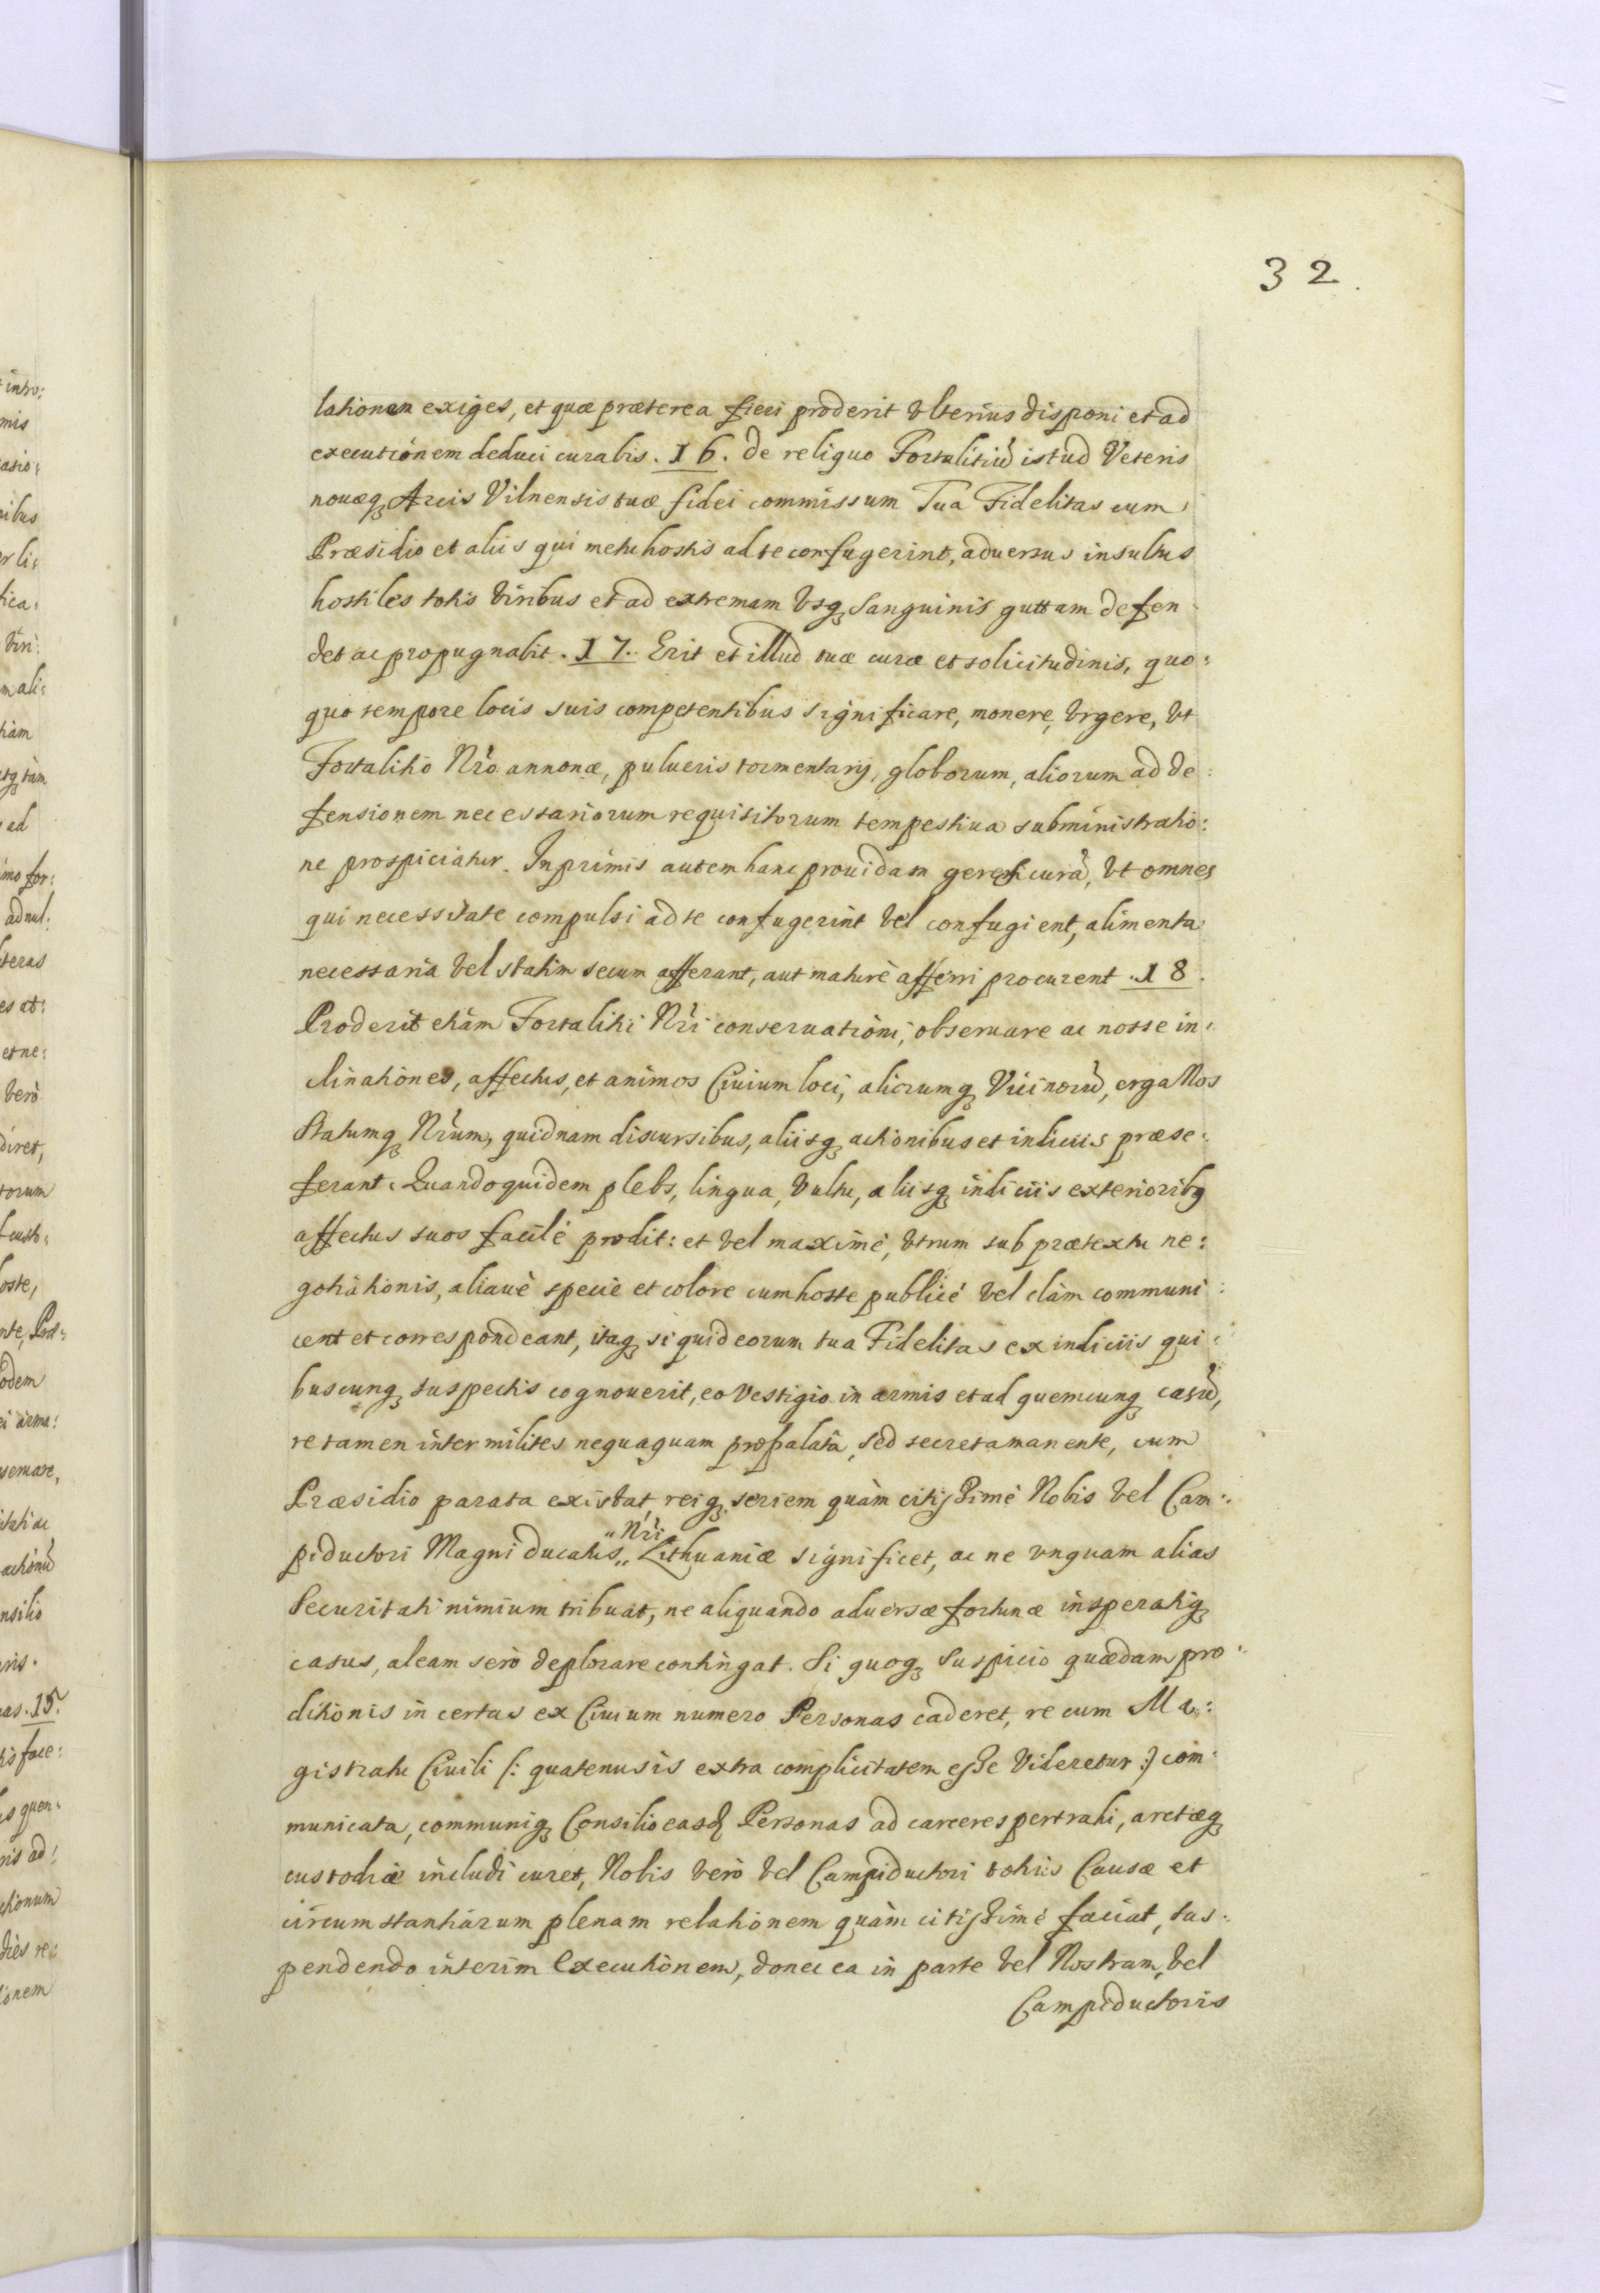 32.
lationem exiges, et quæ præterea fieri proderit vlterius disponi et ad
executionem deduci curabis. 16. de reliquo Fortalitiũ istud Veteris
nouæq Arcis Vilnensis tuæ fidei commissum Tua Fidelitas cum
Præsidio et aliis qui metu hostis ad te confugerint, aduersus insultus
hostiles totis viribus et ad extremam vsq sanguinis guttam defen
det ac propugnabit. 17. Erit et illud tuæ curæ et solicitudinis, quo:
quo tempore locis suis competentibus significare, monere, vrgere, vt
Fortalitio Nro annonæ, pulueris tormentarij, globorum, aliorum ad de:
fensionem necessariorum requisitorum tempestiua subministratio:
ne prospiciatur. Inprimis autem hanc prouidam geres curã, vt omnes
qui necessitate compulsi ad te confugerint vel confugient, alimenta
necessaria vel statim secum afferant, aut maturè afferri procurent. 18.
Proderit etiàm Fortalitii Nri conseruationi, obseruare ac nosse in:
clinationes, affectus, et animos Ciuium loci, aliorumq Vicinorũ, erga Nos
Statumq Nrum, quidnam discursibus, aliisq actionibus et indiciis præse:
ferant. Quandoquidem plebs, lingua, vultu, aliisq indiciis exterioribq
affectus suos facilè prodit: et vel maximè, vtrum sub prætextu ne:
gotiationis, aliauè specie et colore cum hoste publicè vel clàm communi:
cent et correspondeant, itaq si quid eorum tua Fidelitas ex indiciis qui:
buscunq suspectis cognouerit, eo vestigio in armis et ad quemcunq casũ,
re tamen inter milites nequaquam propalatâ, sed secreta manente, cum
Præsidio parata existat, reiq seriem quàm citissimè Nobis vel Cam:
piductori Magni ducatus „Nri„ Lithuaniæ significet, ac ne vnquam alias
Securitati nimium tribuat, ne aliquando aduersæ fortunæ insperatiq
casus, aleam serò deplorare contingat. Si quoq Suspicio quædam pro:
ditionis in certas ex Ciuium numero Personas caderet, re cum Ma:
gistratu Ciuili (: quatenus is extra complicitatem esse videretur :) com:
municata, communiq Consilio easd Personas ad carceres pertrahi, arctæq
custodiæ includi curet, Nobis verò vel Campiductori totius Causæ et
circumstantiarum plenam relationem quàm citissimè faciat, sus:
pendendo interim executionem, donec ea in parte vel Nostram, vel
Campiductoris